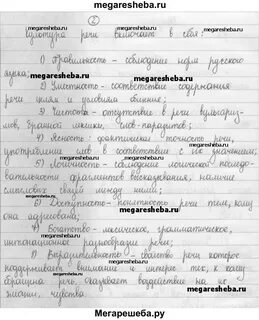 megaresheba.ru
2
Культура речи включает в себя:
megaresheba.ru
1) Правильность - соблюдение норм русского
языка;
2) Уместность - соответствие содержания
речи целям и условиям общения;
3) Чистота - отсутствие в речи вульгариз-
мов, бранной лексики, слов-паразитов;
4) Ясность - точность речи,
употребление слов в соответствии с их значением;
5) Логичность - соблюдение логической последо-
вательности фрагментов высказывания, наличие
смысловых связей между ними;
6) Доступность - понятность речи тем, кому
она адресована;
7) Богатство - лексическое, грамматическое,
интонационное разнообразие речи;
8) Выразительность - свойство речи которое
поддерживает внимание и интерес тех, к кому
обращена речь, оказывает воздействие на их
чувства
megaresheba.ru
Мегарешеба.ру